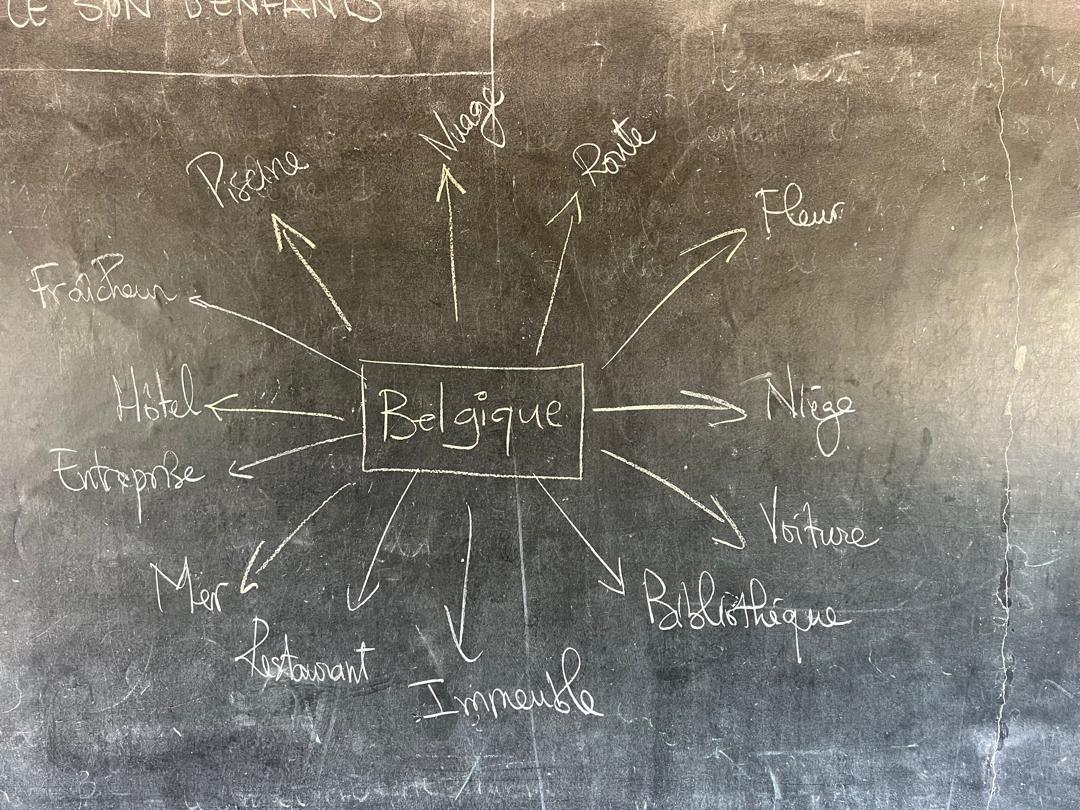 LE SON D'ENFANTS
Nuage
Piscine
Route
Fleur
Fraîcheur
Hôtel
Belgique
Niège
Entreprise
Voiture
Mer
Bibliothèque
Restaurant
Immeuble